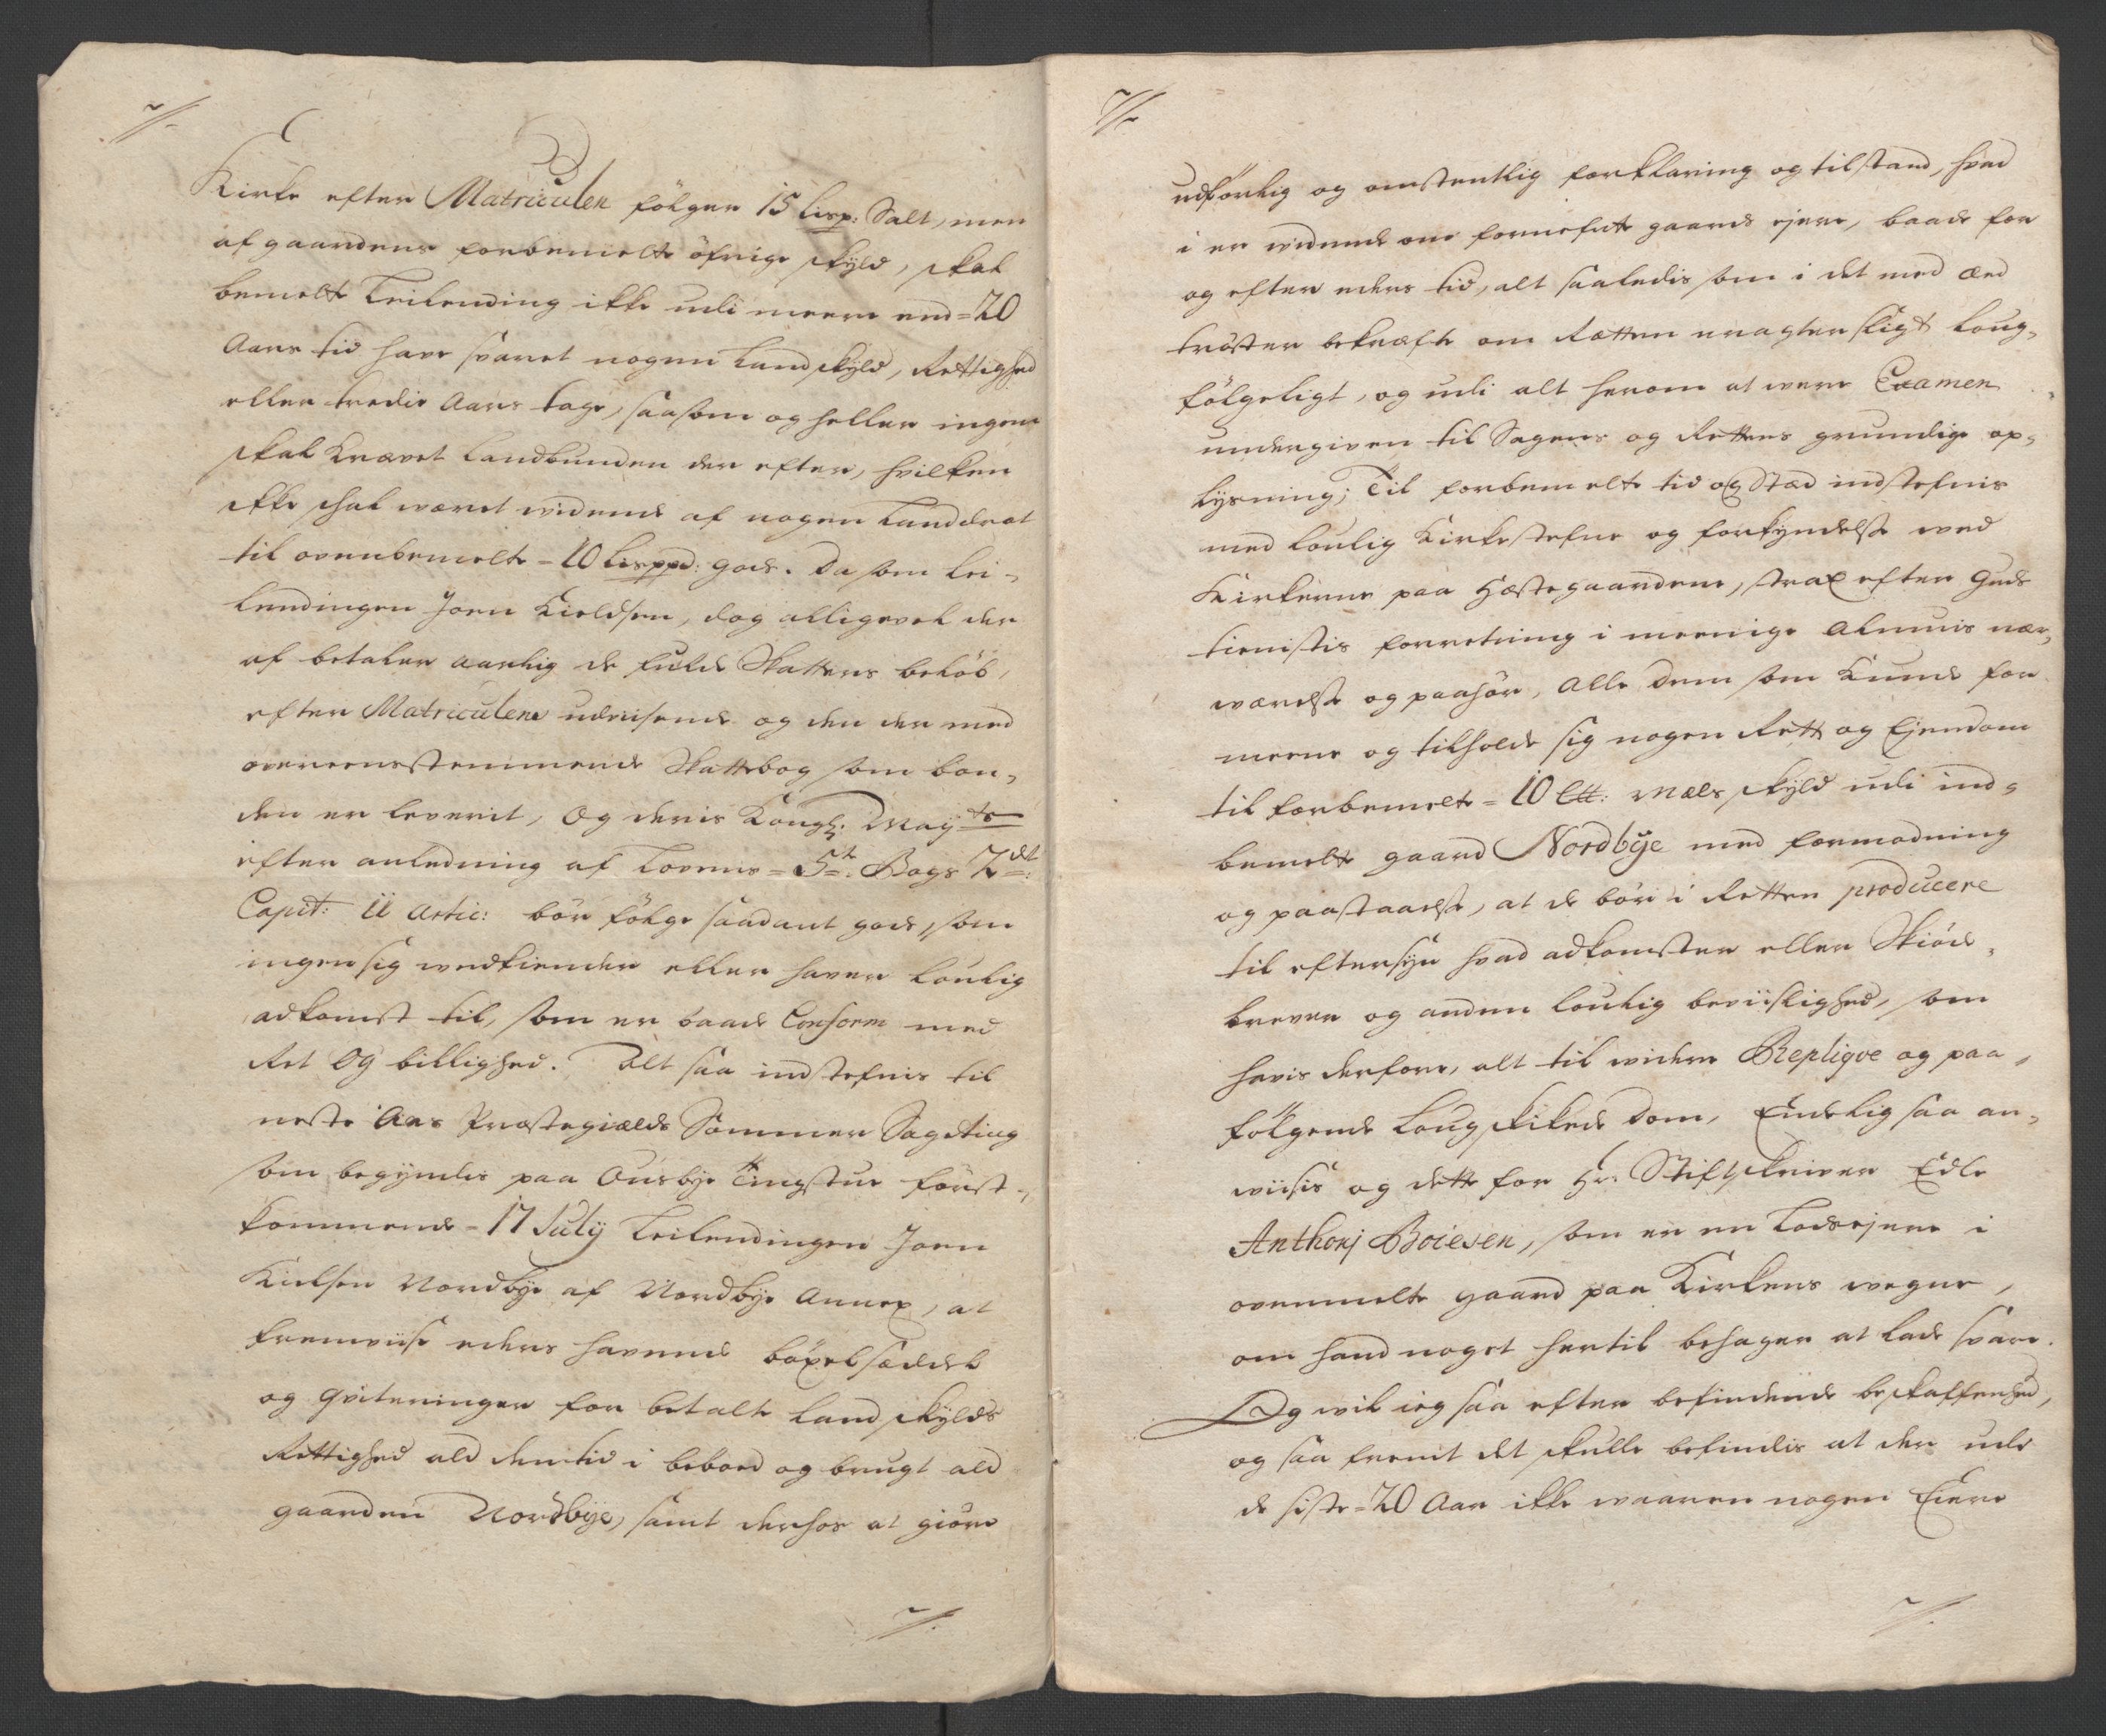 Kirke efter Matriculen følger 15 Lisp: Salt, men
af gaardens forbemelte øfrige skyld, skal
bemelte Leilending ikke udi meere end = 20
Aars tid have svaret nogen Landskyld, Rettighed
eller tredie Aars tage, saasom og heller ingen
skal krævet Landbunden der efter, hvilken
ikke skal wæret widende af nogen Landdrot
til ovenbemelte = 10 Lisppd: gods. Da som Lei-
lendingen Joen Kieldsen, dog alligevel der
af betaler aarlig de fulde Skatters beløb,
efter Matriculens udviisende og den der med
overeensstemmende Skattebog som bon-
den er leverit, Og deris Kongl: May:ts
efter anledning af Lovens = 5te Bogs 7de:
Capit: 11 Artic: bør følge saadant gods, som
ingen sig wedkiender eller haver louglig
adkomst til, som er baade Conform med
Ret Og billighed. Alt saa indstefnis til
neste Aas Præstegields Sommer Sageting
som begyndes paa Ousbye Tingstue først-
kommende = 17 July Leilendingen Joen
Kielsen Nordbye af Nordbye Annex, at
fremviise eders havende bøxelseddel
og qviteringer for betalt Landskylds
Rettighed ald den tid i beboed og brugt ald
gaarden Nordbye, samt derhos at giøre
udførlig og omstentlig forklaring og tilstand, hvad
i er widende om fornefnte gaards ejere, baade for
og efter eders tid, alt saaledis som i det med Æed
trøster bekræfte om Retten eragter sligt loug-
følgeligt, og udi alt herom at were Examen
undergiven til Sagens og Rettens grundige op-
lysning; Til forbemelte tid og Stæd indstefnis
med loulig Kirkestefne og forkyndelse wed
Kirkerne paa Hæstegaardene, strax efter Guds
tienistis forretning i meenige Almuis nær-
wærelse og paahør, Alle dem som kunde for
meene og tilholde sig nogen Rett og Ejendom
til forbemelte = 10 Mæls skyld udi ind-
bemelte gaard Nordbye med formodning
og paastaaelse, at de bør i Retten producere
til eftersyn hvad adkomster eller Skiøde-
brever og anden loulig beviislighed, som
havis derfore, alt til widere Repliqve og paa-
følgende Lougskikede Dom, Endelig saa an-
wiisis og dette for Hr: Stiftskriver Edle
Anthonj Boiesen, som er en Lodsejere i
ovenmelte gaard paa Kirkens wegne,
om hand noget hertil behager at lade svare.
Og wil ieg saa efter befindende beskaffenhed,
og saa fremt det skulle befindis at der ude
de siste = 20 Aar ikke waaren nogen Eiere